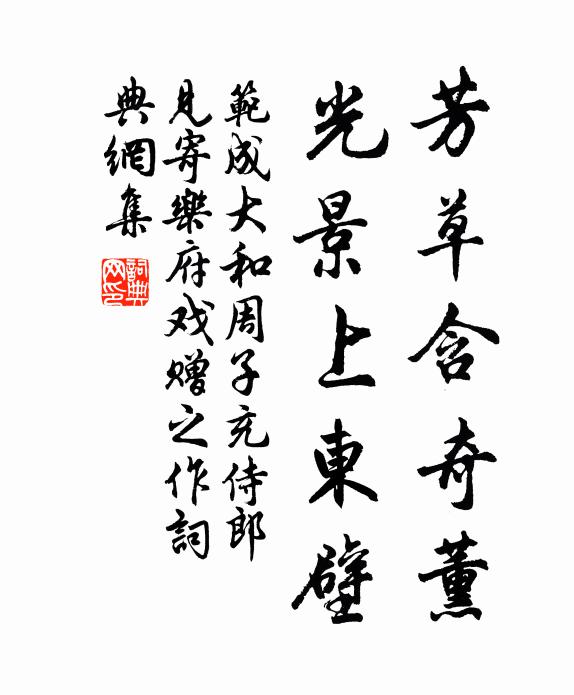 芳草含奇薰
光景上東壁
範成大和周子充侍郎
見寄樂府戏贈之作詞
典網集
詞典
网印